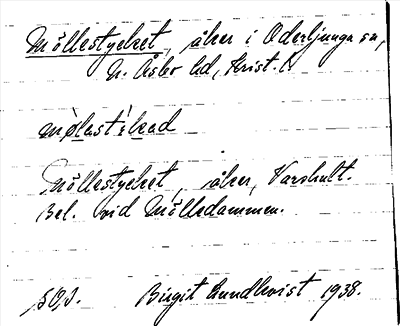 Möllestycket, åker i Oderljunga sn,
N. Åsbo hd, Krist. l.
Möllestycket, åker, Varshult.
Bel. vid Mölledammen.
Birgit Lundkvist 1938.